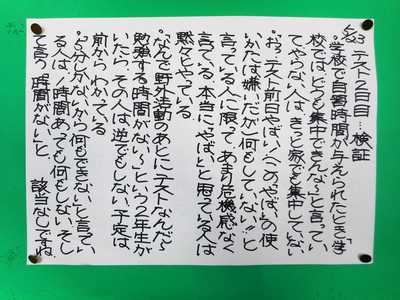 テスト2日目…検証
・学校で自習時間が与えられたとき、「学
校ではどうも集中できんな〜」と言って
てやらない人は、きっと家でも集中してない
・「おっ、テスト前日やばい(この"やばい"の使
いかたは嫌いだが)何もしていない!!」と
言っている人に限って、あまり危機感なく
言っている。本当に"やばい"と思っている人は
黙々とやっている
・「なんで野外活動のあとにテストなんだ〜
勉強する時間がない〜」という2年生が
いたら、その人は逆でもしない予定は
前からわかっている
・「5分しかないから何もできない」と言ってい
る人は1時間あっても何もしない。そし
て言う「時間がない」と。 該当なしですね